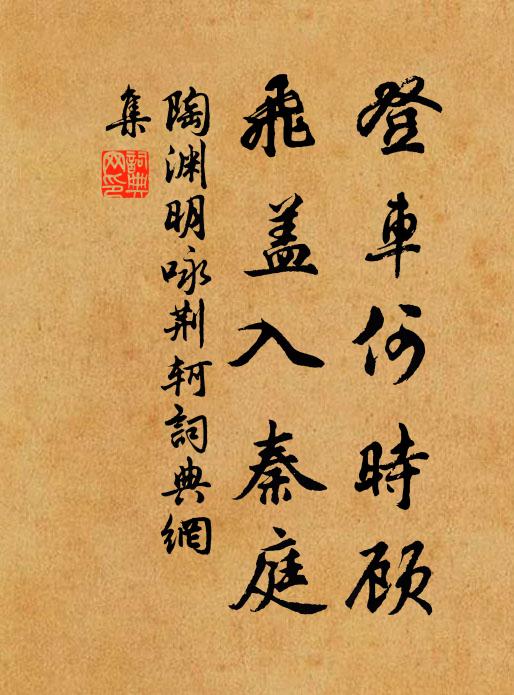 登車何時顾
飛盖入秦庭
陶渊明咏荆轲詞典網
集
詞典
网印